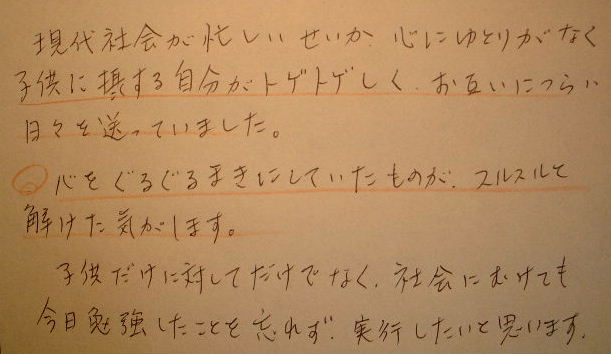 現代社会が忙しいせいか、心にゆとりがなく
子供に接する自分がトゲトゲしく、お互いにつらい
日々を送っていました。
心をぐるぐるまきにしていたものが、スルスルと
解けた気がします。
子供だけに対してだけでなく、社会にむけても
今日勉強したことを忘れず、実行したいと思います。